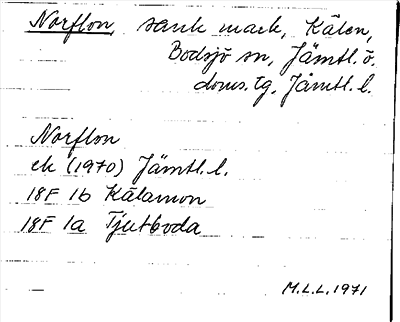 Norflon, sank mark, Kälen,
Bodsjö sn, Jämtl. ö.
doms. tg, Jämtl. l.
Norflon
ek (1970) Jämtl. l.
18F 1b Kälamon
18F 1a Tjutboda
M.L.L. 1971